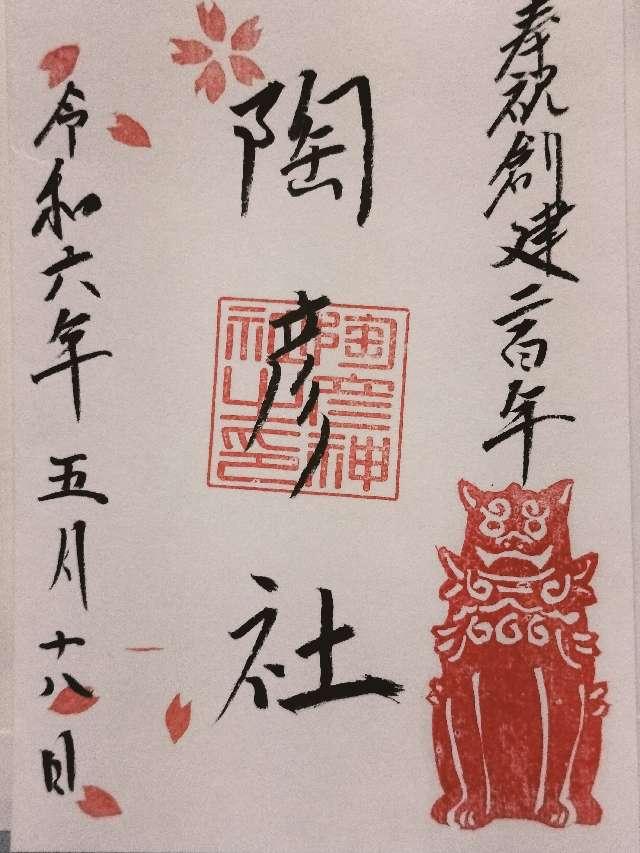 奉祝創建二百年
陶彦社
陶彦神社之印
令和六年五月十八日